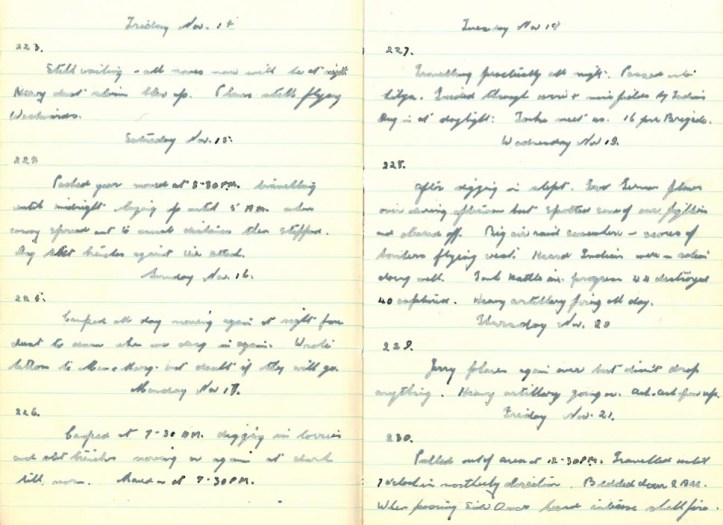 Friday Nov. 14
223.
Still waiting - all moves now will be at night
Heavy dust storm blew up. Planes still flying
Westwards.
Saturday Nov. 15.
224.
Packed gear moved at 5-30 P.M. travelling
until midnight laying up until 5 A.M. when
convoy spread out to usual distance then stopped.
Dug slit trenches against air attack.
Sunday Nov. 16.
225.
Camped all day moving again at night from
dusk to dawn when we dug in again. Wrote
letters to Mum & Mary. but doubt if they will go.
Monday Nov 17.
226.
Camped at 7-30 AM. digging in lorries
and slit trenches moving on again at dusk
till morn. Moved on at 7.30 PM.
Tuesday Nov 18
227.
Travelling practically all night. Passed into
Libya. Guided through wire & mine fields by Indians
Dug in at daylight: Tanks meet us. 16 per Brigade.
Wednesday Nov 19.
228.
After digging in slept. Two German planes
over during afternoon but spotted some of our fighters
and cleared off. Big air raid somewhere - scores of
bombers flying west. Heard Indians were in action
doing well. Tank battle in progress 44 destroyed
40 captured. Heavy artillery firing all day.
Thursday Nov. 20
229.
Jerry planes again over but didn't drop
anything. Heavy artillery going on. Ack-ack
Friday Nov. 21.
230.
Pulled out of area at 12-30 PM. Travelled until
7 o'clock in northerly direction. Bedded down
When passing Sidi Omar heard intense shell fire.